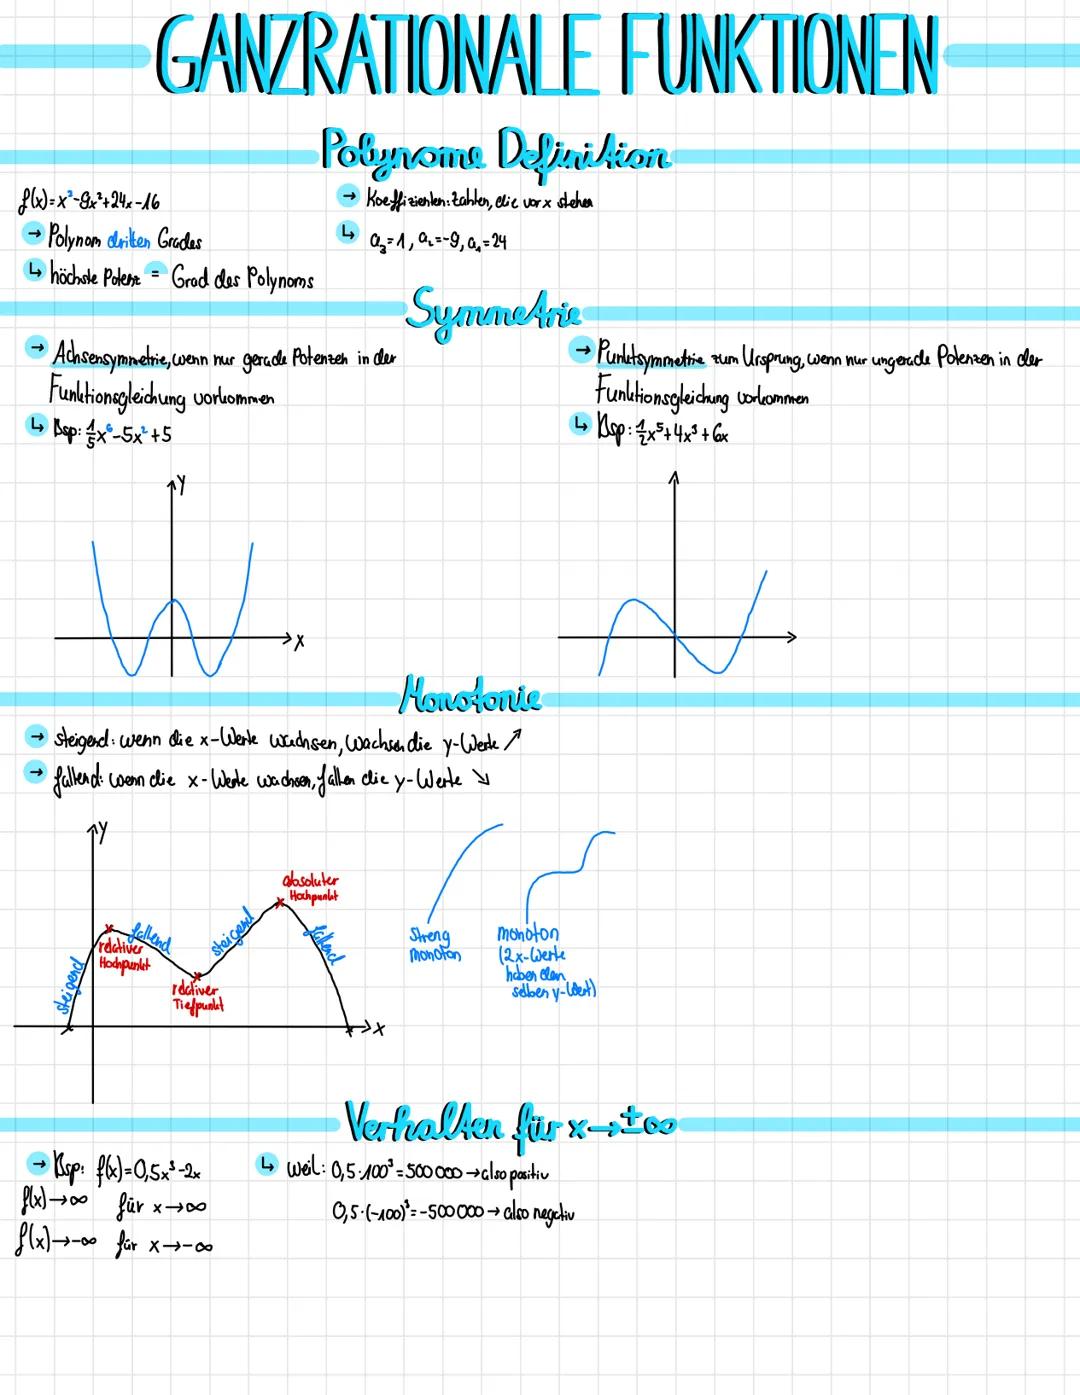 GANZRATIONALE FUNKTIONEN
Polynome Definition
f(x)=x³-9x²+24x-16
→ Polynom dritten Grades
↳ höchste Potenz = Grad des Polynoms
→ Koeffizienten: Zahlen, die vor x stehen
↳ a₃=1, a₂=-9, a₁=24
Symmetrie
→ Achsensymmetrie, wenn nur gerade Potenzen in der
Funktionsgleichung vorkommen
↳ Bsp: 1/5x⁶-5x²+5
→ Punktsymmetrie zum Ursprung, wenn nur ungerade Potenzen in der
Funktionsgleichung vorkommen
↳ Bsp: 1/2x⁵+4x³+6x
y
x
Monotonie
→ steigend: wenn die x-Werte wachsen, wachsen die y-Werte ↗
→ fallend: wenn die x-Werte wachsen, fallen die y-Werte ↘
y
absoluter
Hochpunkt
steigend
fallend
steigend
fallend
relativer
Hochpunkt
relativer
Tiefpunkt
x
streng
monoton
monoton
(2x-Werte
haben den
selben y-Wert)
Verhalten für x→±∞
→ Bsp: f(x)=0,5x³-2x
f(x)→∞ für x→∞
f(x)→-∞ für x→-∞
↳ weil: 0,5·100³=500 000 → also positiv
0,5·(-100)³=-500 000 → also negativ